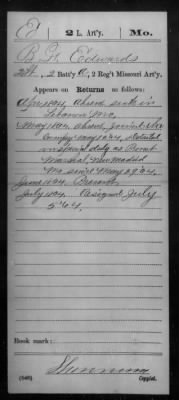 E | 2 L. Art'y. | Mo.
B. H. Edwards
2 Lt., 2 Batt'y A, 2 Reg't Missouri Art'y.
Appears on Returns as follows:
Apr 1864, Absent sick in
Lebanon Mo,
May 1864 Absent, Joined
Company May 10 64, detailed
in special duty as Provost
Marshal, New Madrid
Mo. since May 29, 64,
June 1864 Present
July 1864 Resigned July
5" 64.
Book mark:
(546)
Copyist.